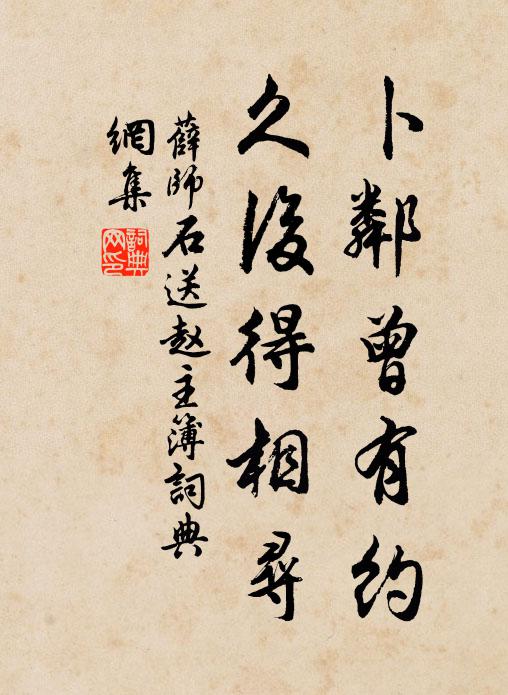 卜鄰曾有約
久後得相尋
薛師石送赵主簿詞典
網集
詞典
网印